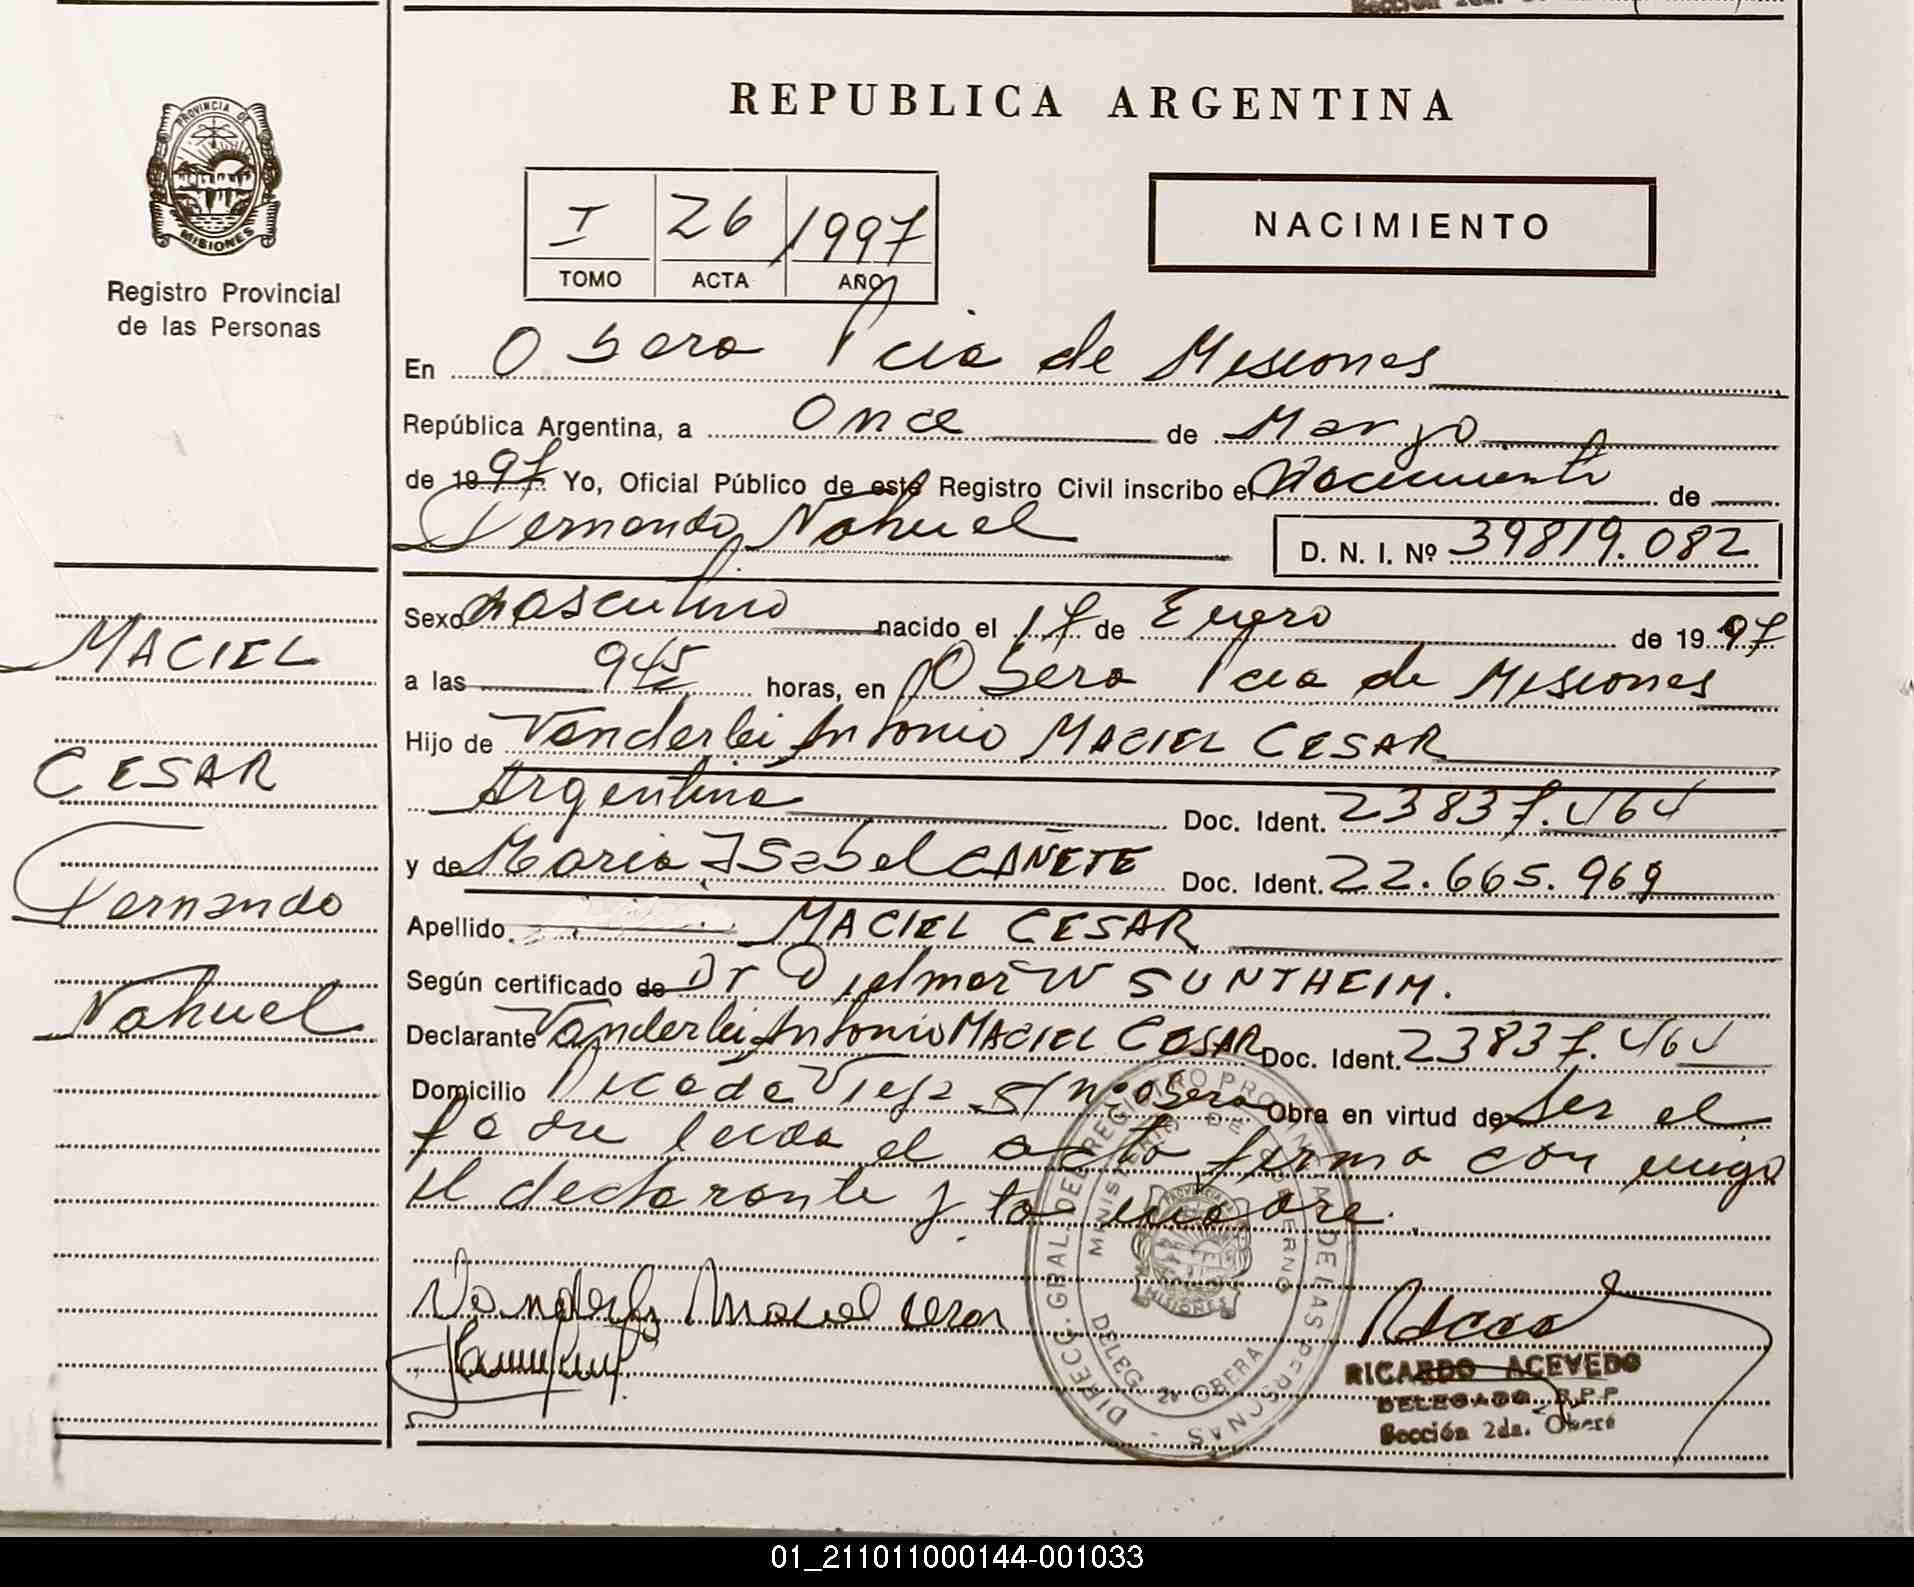 PROVINCIA DE
MISIONES
Registro Provincial
de las Personas
MACIEL
CESAR
Fernando
Nahuel
REPUBLICA ARGENTINA
I 26 1997
TOMO ACTA AÑO
NACIMIENTO
En Obera Pcia de Misiones
República Argentina, a Once de Marzo
de 1997 Yo, Oficial Público de este Registro Civil inscribo el Nacimiento de
Fernando Nahuel D. N. I. Nº 39819.082
Sexo Masculino nacido el 17 de Enero de 1997
a las 945 horas, en Obera Pcia de Misiones
Hijo de Vanderlei Antonio MACIEL CESAR
Argentina Doc. Ident. 23837.464
y de Maria Isabel CAÑETE Doc. Ident. 22.665.969
Apellido MACIEL CESAR
Según certificado de Dr Dielmar W SUNTHEIM.
Declarante Vanderlei Antonio MACIEL CESAR Doc. Ident. 23837.464
Domicilio Picada Vieja s/nº Obera Obra en virtud de Ser el
padre leida el acta firma con migo
el declarante y la madre.
DIRECC. GRAL. DEL REGISTRO PROVINCIAL DE LAS PERSONAS
MINISTERIO DE GOBIERNO
PROVINCIA DE MISIONES
DELEG. 2ª OBERA
Maciel Cesar
RICARDO ACEVEDO
DELEGADO R.P.P.
Sección 2da. Oberá
01_211011000144-001033